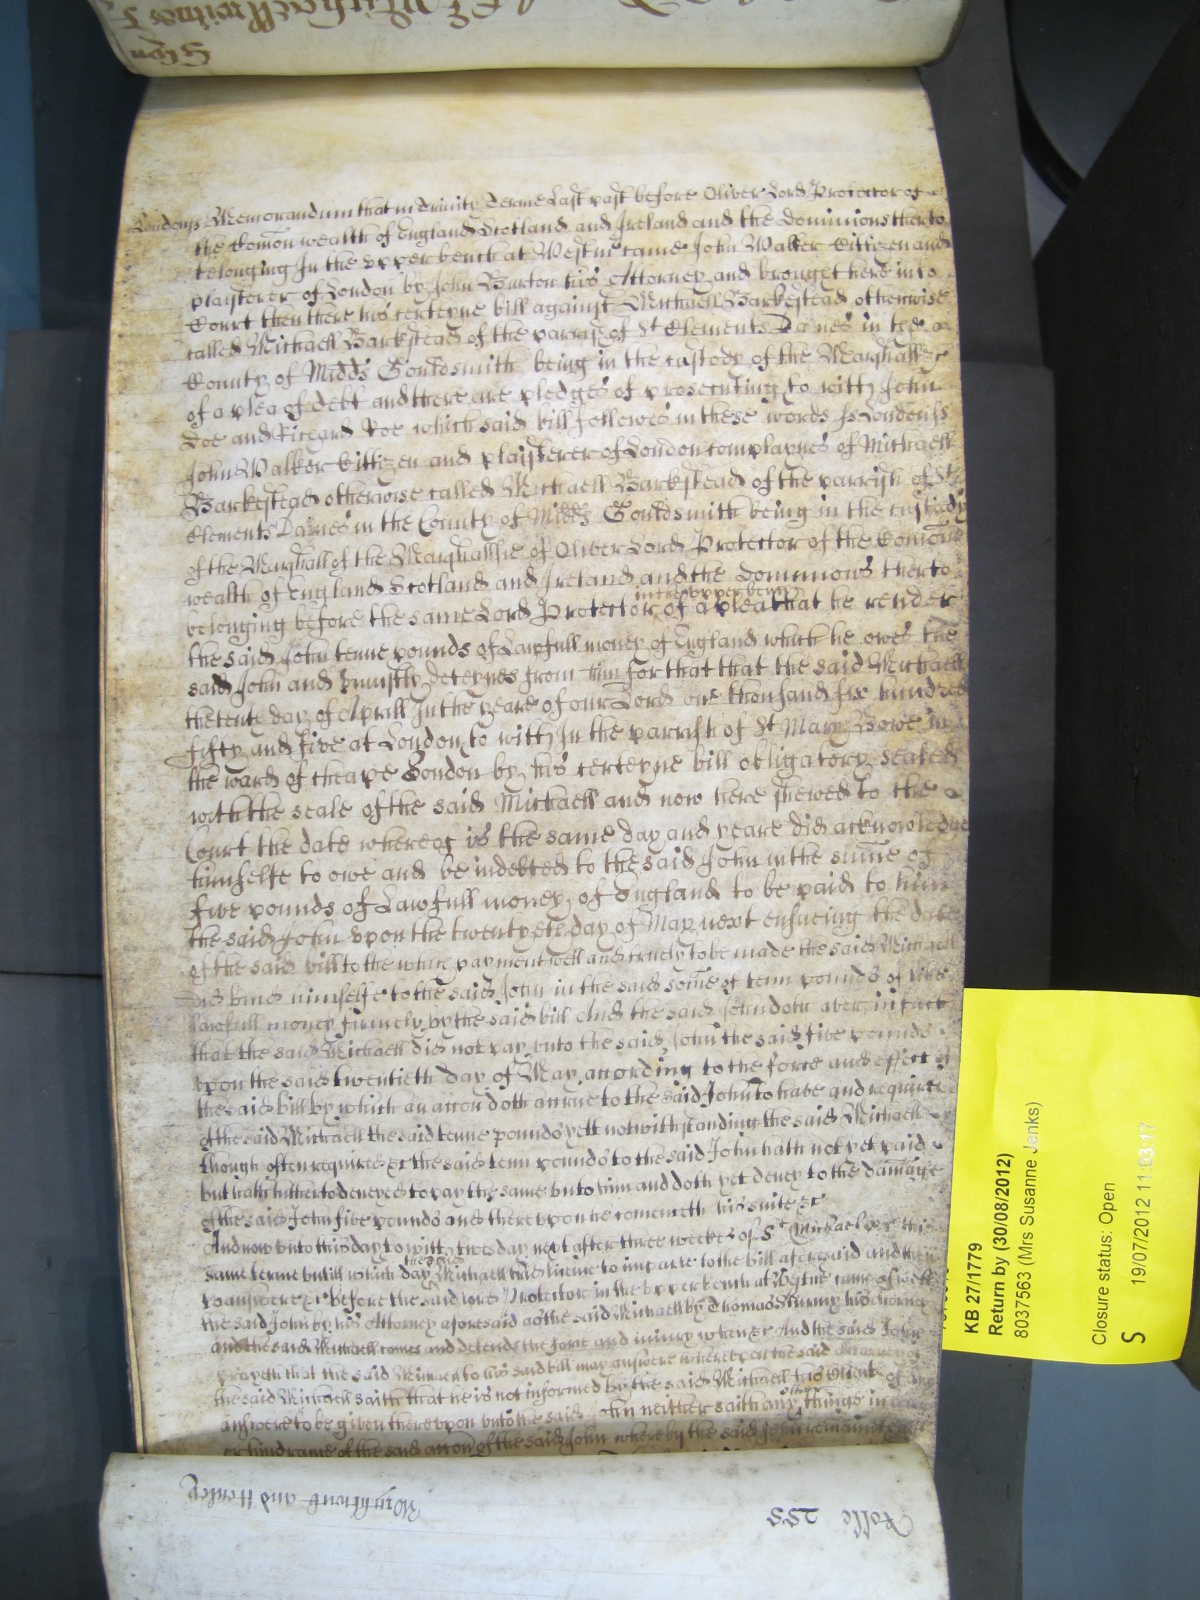 London ss Memorandum that in Trinity Terme Last past before Oliver Lord Protector of
the Comon wealth of England Scotland and Ireland and the Dominions therto
belonging In the upper bench at Westmr came John Walker Cittizen and
plaisterer of London by John Burton his Attorney and brought here into
Court then there his certeyne bill against Michaell Barkestead otherwise
called Michaell Barkstead of the parrish of St Clements Danes in the
County of Midds Gouldsmith being in the custody of the Marshall &c
of a plea of debt and there are pledges of prosecuting to witt John
Doe and Richard Roe which said bill followes in these words ss London ss
John Walker Cittizen and plaisterer of London complaynes of Michaell
Barkestead otherwise called Michaell Barkstead of the parrish of St
Clements Danes in the County of Midds Gouldsmith being in the custody
of the Marshall of the Marshallsie of Oliver Lord Protector of the Comon
wealth of England Scotland and Ireland and the Dominions therto
in the upper bench
belonging before the same Lord Protector of a plea that he render
the said John tenne pounds of Lawfull money of England which he owes the
said John and uniustly deteynes from him for that that the said Michaell
the tenth day of Aprill In the yeare of our Lord one thousand six hundred
fifty and five at London to witt In the parrish of St Mary Bowe in
the ward of Cheape London by his certeyne bill obligatory sealed
with the seale of the said Michaell and now here shewed to the
Court the date whereof is the same day and yeare did acknowledge
himselfe to owe and be indebted to the said John in the sume of
five pounds of Lawfull money of England to be paid to him
the said John upon the twentyeth day of May next ensueing the date
of the said bill to the which payment well and truely to be made the said Michaell
did bind himselfe to the said John in the said some of tenn pounds of like
lawfull money firmely by the said bill And the said John doth aver in fact
that the said Michaell did not pay unto the said John the said five pounds
upon the said twentieth day of May according to the force and effect of
the said bill by which an accon doth accrue to the said John to have and require
of the said Michaell the said tenne pounds yett notwithstanding the said Michaell
though often required &c the said tenn pounds to the said John hath not yet paid
but hath hitherto denyed to pay the same unto him and doth yet deney to the damage
of the said John five pounds and thereupon he comenceth his suite &c
And now unto this day to witt twesday next after three weekes of St Michael this
the said
same terme untill which day Michaell had licence to imparle to the bill aforesaid and then
to answere &c before the said Lord Protector in the upper bench at Westmr came as well
the said John by his Attorney aforesaid as the said Michaell by Thomas his Attorney
and the said Michaell comes and defends the force and iniury when &c And the said John
prayeth that the said Michaell to his said bill may answere whereupon the said Attorney of
the said Michaell saith that he is not informed by the said Michaell his Client of any
other
answere to be given thereupon unto the said John neither saith any things in
of the said accon of the said John whereby the said John remaines
Wightwick and Henley
Rolle 255
KB 27/1779
Return by (30/08/2012)
8037563 (Mrs Susanne Jenks)
Closure status: Open
S 19/07/2012 11:03:17